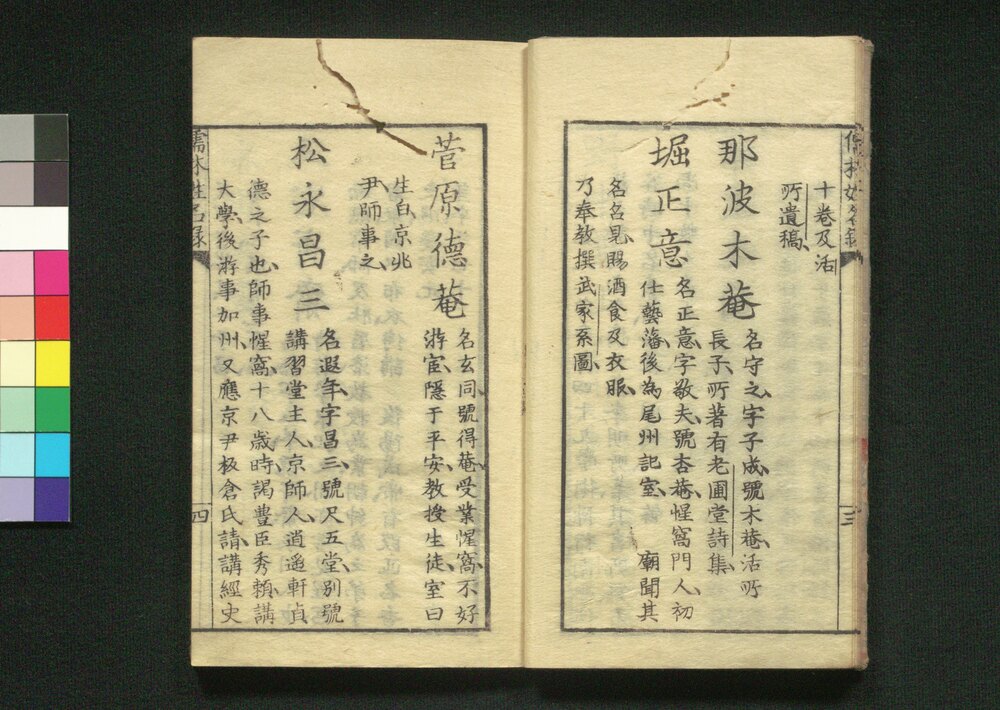 儒林姓名録
三
十卷及活
所遺稿
那波木菴
名守之字子成號木菴活所
長子所著有老圃堂詩集
堀正意
名正意字敬夫號杏菴惺窩門人初
仕藝藩後為尾州記室 廟聞其
名名見賜酒食及衣服
乃奉教撰武家系圖
菅原德菴
名玄同號得菴受業惺窩不好
游宦隱于平安教授生徒室曰
生白京兆
尹師事之
松永昌三
名遐年字昌三號尺五堂別號
講習堂主人京師人逍遙軒貞
德之子也師事惺窩十八歲時謁豊臣秀賴講
大學後游事加州又應京尹板倉氏請講經史
儒林姓名録
四